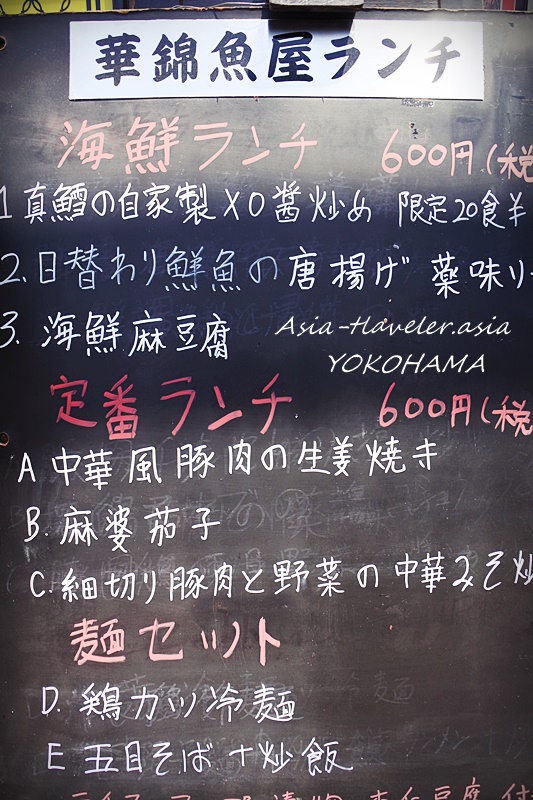 華錦魚屋ランチ
海鮮ランチ 600円(税
1 真鱈の自家製XO醤炒め 限定20食
2.日替わり鮮魚の唐揚げ 薬味リ
3. 海鮮麻豆腐
Asia-Traveler.asia
YOKOHAMA
定番ランチ 600円(税
A 中華風豚肉の生姜焼き
B. 麻婆茄子
C. 細切り豚肉と野菜の中華みそ炒
麺セット
D. 鶏カツ冷麺
E 五目そば+炒飯